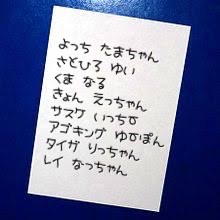 よっち たまちゃん
さとひろ ゆい
くま なる
きょん えっちゃん
サスケ いっちー
アゴキング ゆかぽん
タイガ りっちゃん
レイ なっちゃん